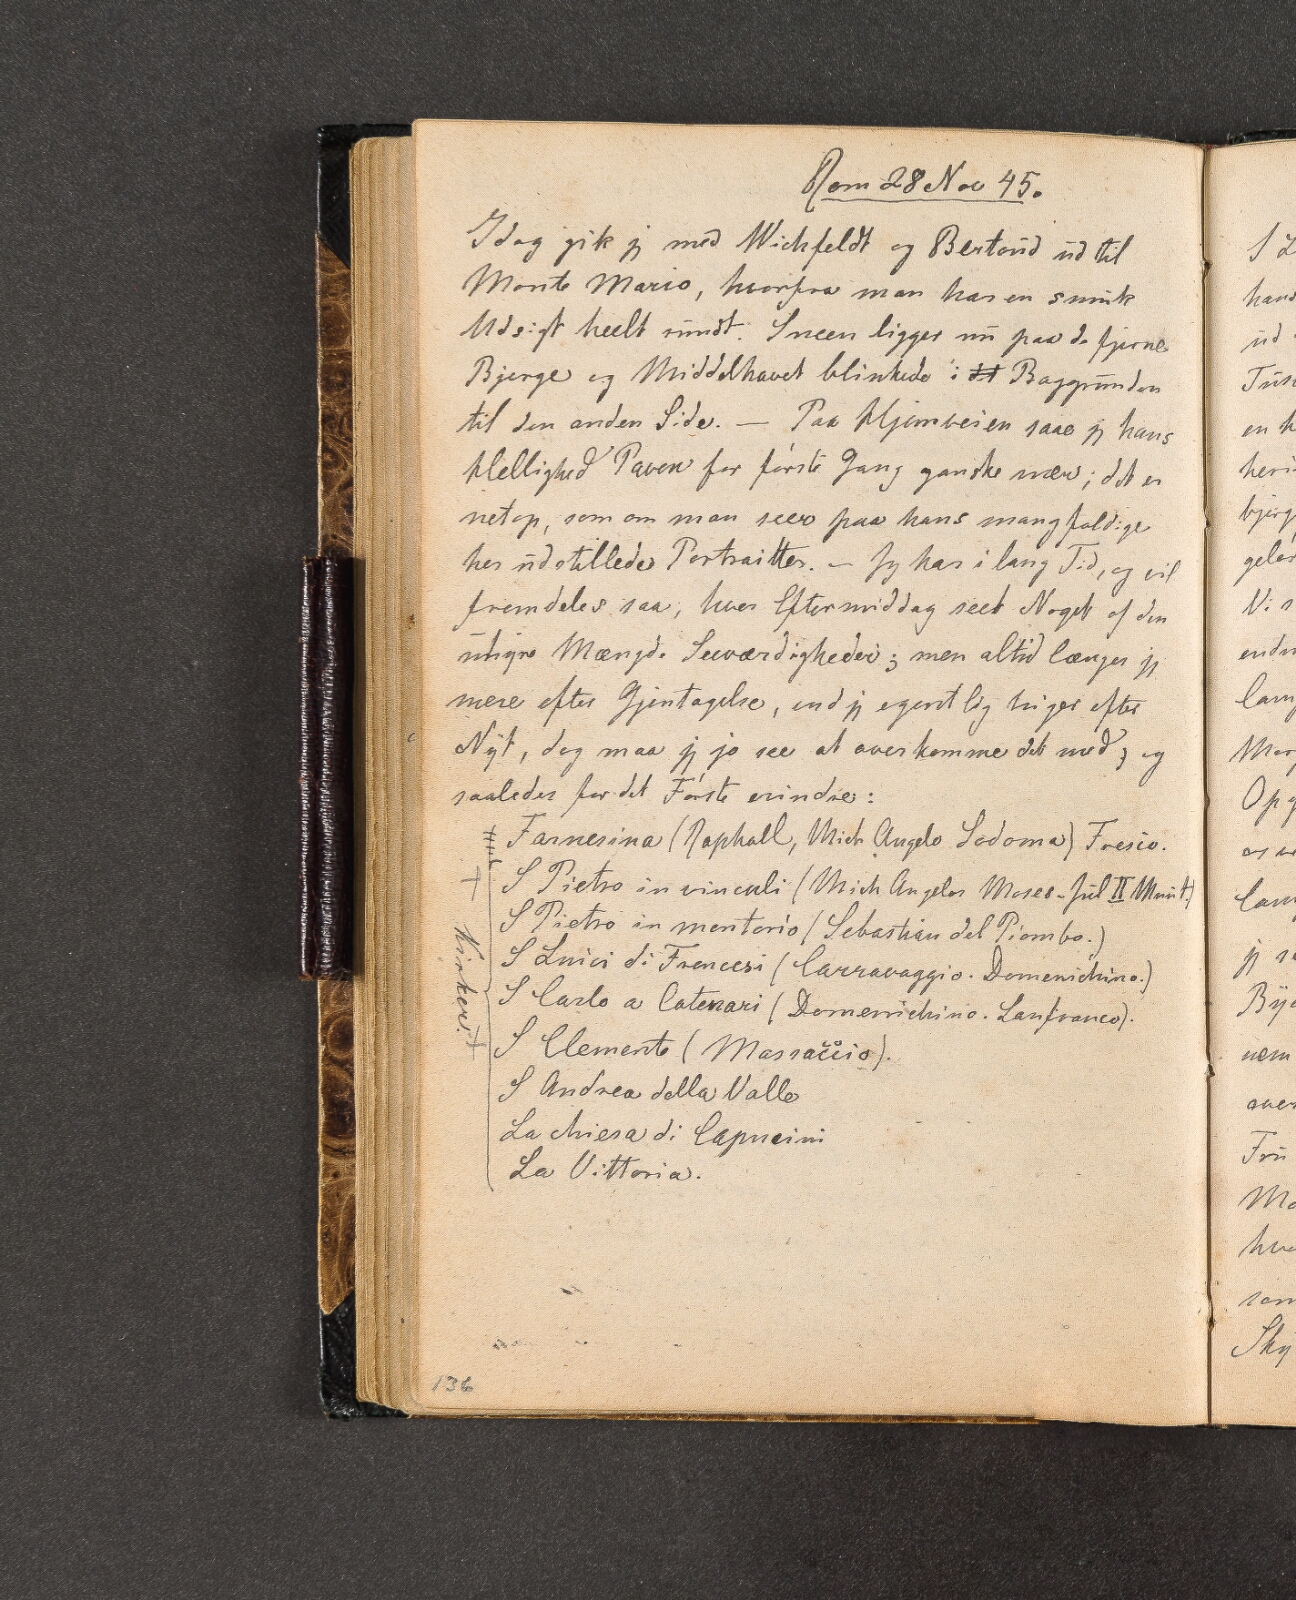 Rom 28 Nov 45.
Idag gik jeg med Wichfeldt og Bertoūd ūd til
Monte Mario, hvorfra man har en smūk
Udsigt heelt rūndt. Sneen ligger nū paa de fjerne
Bjerge og Middelhavet blinkede i Baggrūnden
til den anden Side. — Paa Hjemveien saae jeg hans
Hellighed Paven for første Gang ganske nær; det er
netop, som om man seer paa hans mangfoldige
her ūdstillede Portraitter. — Jeg har i lang Tid, og vil
fremdeles saa, hver Eftermiddag seet Noget af den
ūhyre Mængde Seeværdigheder; men altid længes jeg
mere efter Gjentagelse, end jeg egentlig higer efter
Nÿt, dog maa jeg jo see at overkomme det med; og
saaledes for det Første erindre:
Farnesina (Raphall, Mich Angelo Sodoma) Fresco.
S Pietro in vinculi (Mich Angelos Moses - Jul II Munt.)
S Pietro in montorio (Sebastian del Piombo.)
S Luici di Francesi (Carravaggio. Domenichino.)
S Carlo a Catenari (Domenichino. Lanfranco).
S Clemente (Massaccio).
S Andrea della Valle
La chiesa di Capucini
La Vittoria.
Kirker.
136